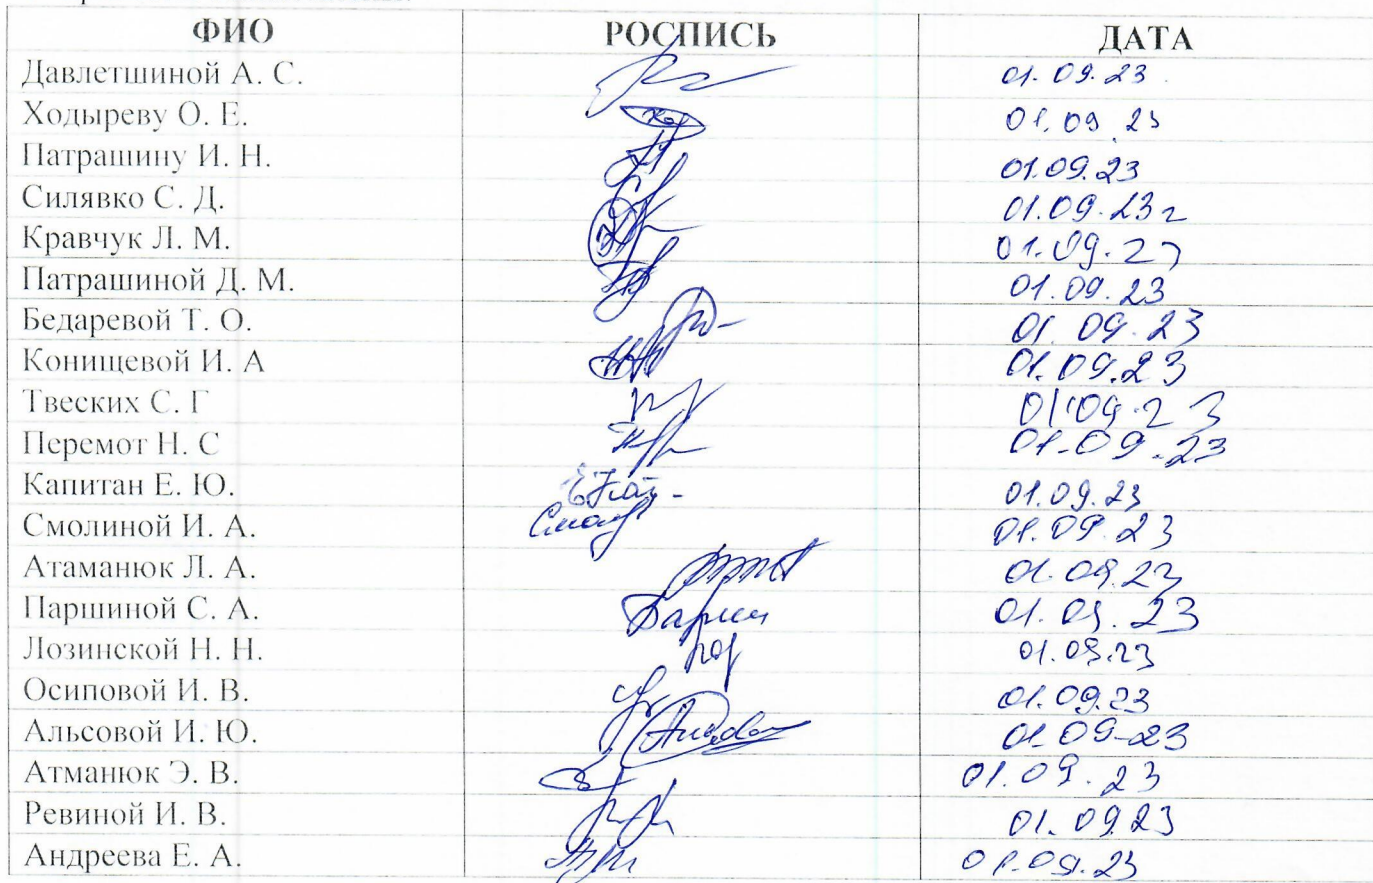 ФИО РОСПИСЬ ДАТА
Давлетшиной А. С. 01.09.23
Ходыреву О. Е. 01.09.23
Патрашину И. Н. 01.09.23
Силявко С. Д. 01.09.23г
Кравчук Л. М. 01.09.23
Патрашиной Д. М. 01.09.23
Бедаревой Т. О. 01.09.23
Конищевой И. А 01.09.23
Твеских С. Г 01.09.23
Перемот Н. С 01.09.23
Капитан Е. Ю. 01.09.23
Смолиной И. А. 01.09.23
Атаманюк Л. А. 01.09.23
Паршиной С. А. 01.09.23
Лозинской Н. Н. 01.09.23
Осиповой И. В. 01.09.23
Альсовой И. Ю. 01.09-23
Атманюк Э. В. 01.09.23
Ревиной И. В. 01.09.23
Андреева Е. А. 01.09.23